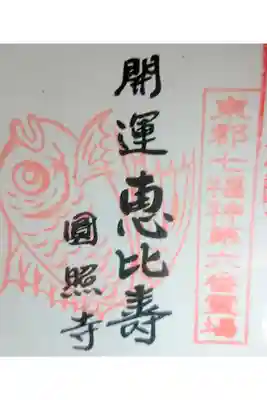 七福神第六番霊場
開運恵比寿
圓照寺